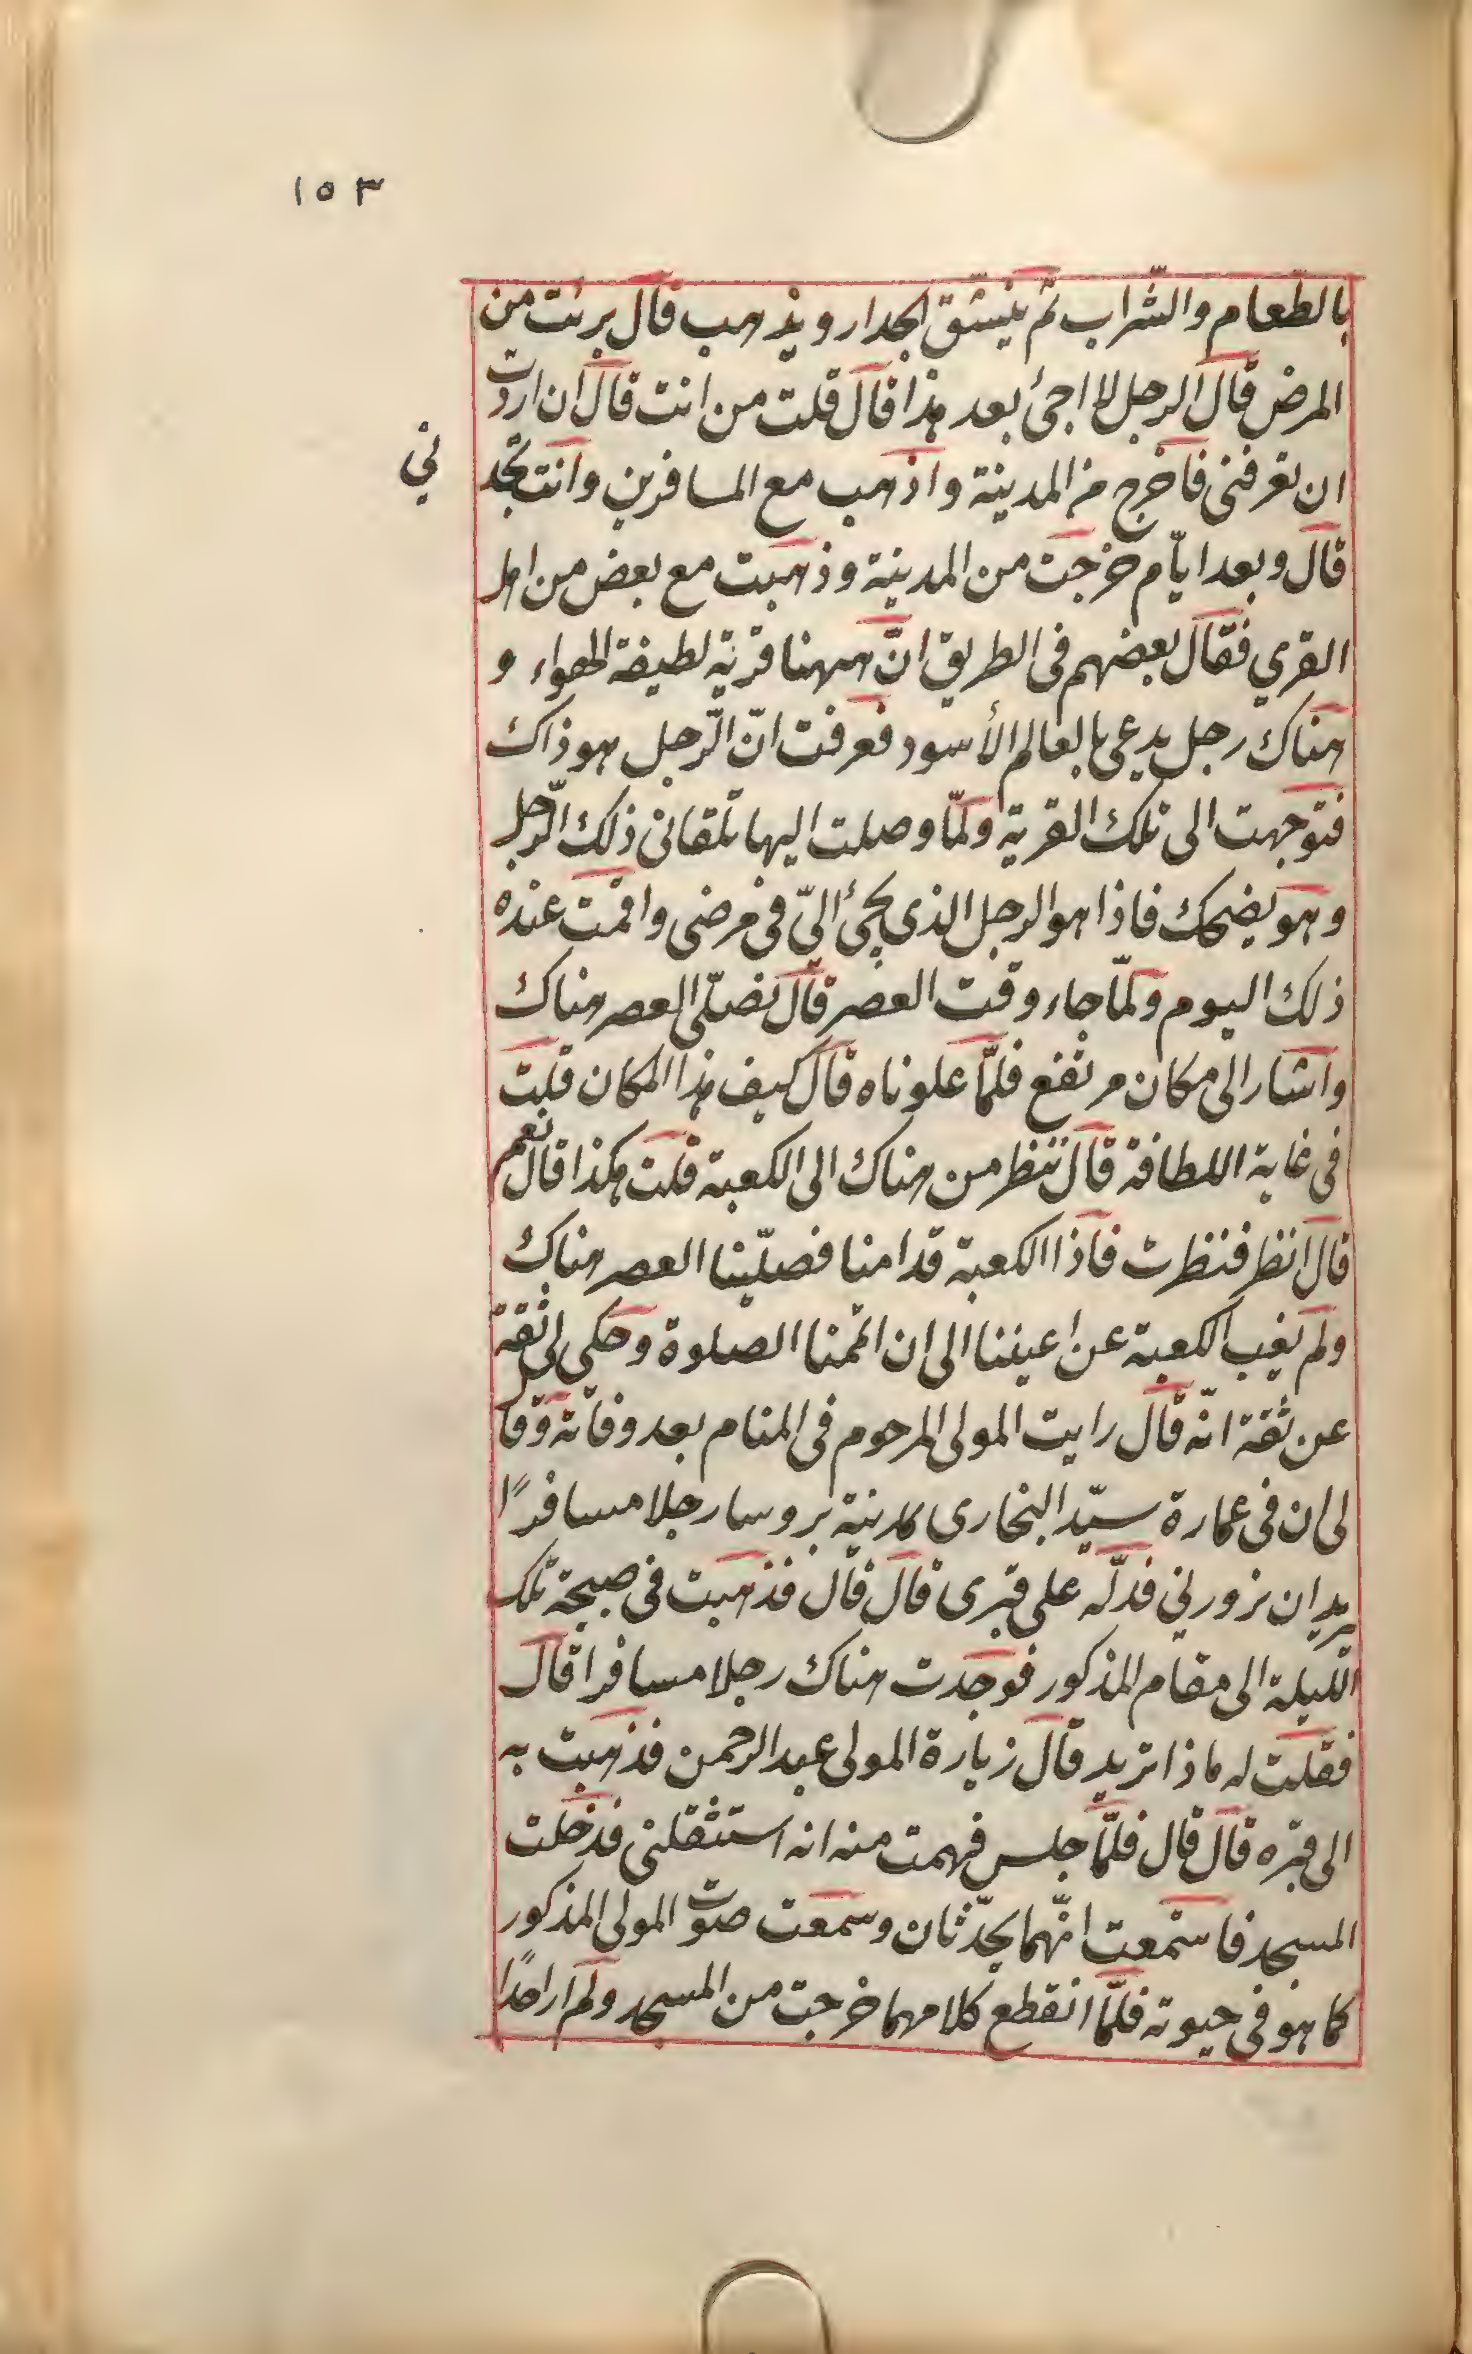 ١٥٣
بالطّعام والشّراب ثمّ ينشقّ الجدار ويذهب قال برئت من
المرض قال الرجل لا اجئ بعد هذا قال قلت من انت قال ان اردت
ان تعرفنى فاخرج من المدينة واذهب مع المسافرين وانت تجد
ني
قال وبعد ايّام خرجت من المدينة وذهبت مع بعض من اهل
القري فقال بعضهم فى الطريق انّ ههنا قرية لطيفة الهواء و
هناك رجل يدعى بالعالم الأسود فعرفت انّ الرّجل هو ذاك
فتوجهت الى تلك القرية ولمّا وصلت اليها تلقانى ذلك الرّجل
وهو يضحك فاذا هو الرجل الذى يجئ اليّ فى مرضى واقمت عنده
ذلك اليوم ولمّا جاء وقت العصر قال نصلّى العصر هناك
واشار الى مكان مرتفع فلمّا علوناه قال كيف هذا المكان قلت
فى غاية اللطافة قال ننظر من هناك الى الكعبة قلت هكذا قال نعم
قال انظر فنظرت فاذا الكعبة قدامنا فصلّينا العصر هناك
ولم يغب الكعبة عن اعيننا الى ان اتممنا الصلوة وحكى لى ثقة
عن ثقة انّه قال رايت المولى المرحوم فى المنام بعد وفاته وقا
لى ان فى عمارة سيّد البخارى بمدينة بروسا رجلا مسافرًا
يريد ان يزورني فدلّه على قبرى قال قال فذهبت فى صبيحة تلك
اللّيلة الى مقام المذكور فوجدت هناك رجلا مسافرا قال
فقلت له ماذا تريد قال زيارة المولى عبد الرحمن فذهبت به
الى قبره قال قال فلمّا جلس فهمت منه انه استثقلنى فدخلت
المسجد فاستمعت انّهما يحدّثان وسمعت صوت المولى المذكور
كما هو فى حيوته فلمّا انقطع كلامهما خرجت من المسجد ولم ار احدًا